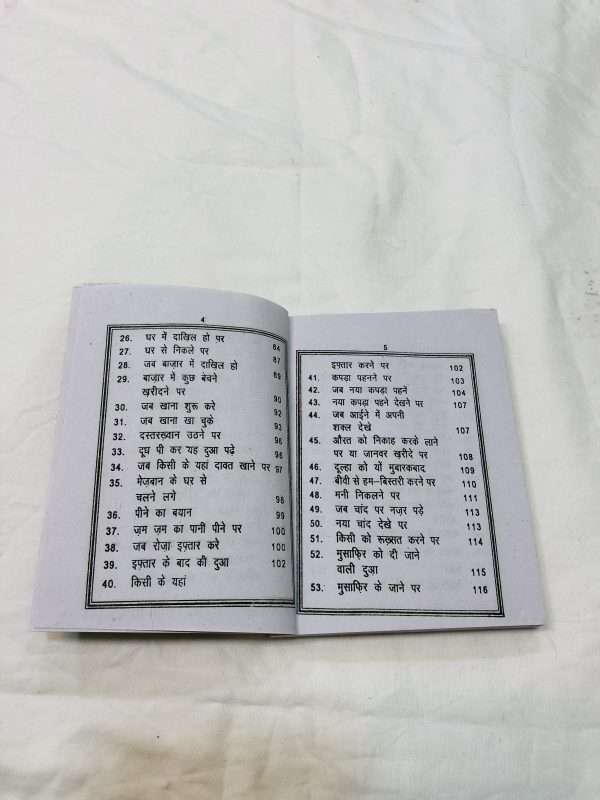 4
26. घर में दाखिल हो पर 84
27. घर से निकले पर 87
28. जब बाज़ार में दाखिल हो 89
29. बाज़ार में कुछ बेचने
ख़रीदने पर 90
30. जब खाना शुरू करे 92
31. जब खाना खा चुके 93
32. दस्तरख़्वान उठने पर 96
33. दूध पी कर यह दुआ पढ़े 96
34. जब किसी के यहां दावत खाने पर 97
35. मेज़बान के घर से
चलने लगे 98
36. पीने का बयान 99
37. ज़म ज़म का पानी पीने पर 100
38. जब रोज़ा इफ़्तार करे 100
39. इफ़्तार के बाद की दुआ 102
40. किसी के यहां
5
इफ़्तार करने पर 102
41. कपड़ा पहनने पर 103
42. जब नया कपड़ा पहनें 104
43. नया कपड़ा पहने देखने पर 107
44. जब आईने में अपनी
शक्ल देखे 107
45. औरत को निकाह करके लाने
पर या जानवर ख़रीदे पर 108
46. दूल्हा को यों मुबारकबाद 109
47. बीवी से हम-बिस्तरी करने पर 110
48. मनी निकलने पर 111
49. जब चांद पर नज़र पड़े 113
50. नया चांद देखे पर 113
51. किसी को रूख़्सत करने पर 114
52. मुसाफ़िर को दी जाने
वाली दुआ 115
53. मुसाफ़िर के जाने पर 116